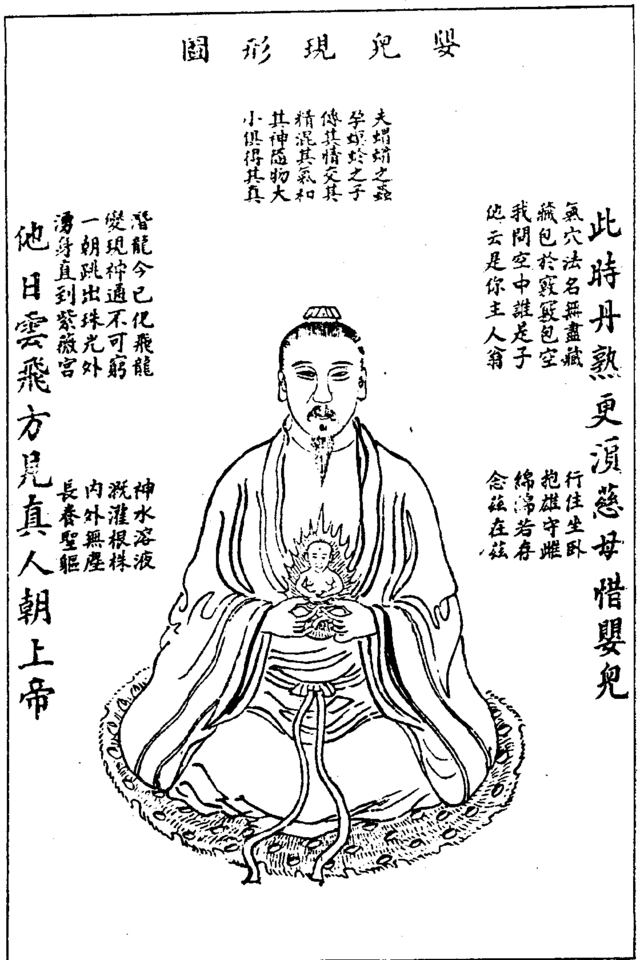 嬰兒現形圖
夫之蟲
孕螟蛉之子
傳其情交其
精混其氣和
其神隨物大
小俱得其真
此時丹熟更須慈母惜嬰兒
氣穴法名無盡藏
藏包於竅竅包空
我問空中誰是子
他云是你主人翁
行住坐臥
抱雄守雌
綿綿若存
念茲在茲
潛龍今已化飛龍
變現神通不可窮
一朝跳出珠光外
湧身直到紫薇宮
神水溶液
溉灌根株
內外無塵
長養聖軀
他日雲飛方見真人朝上帝